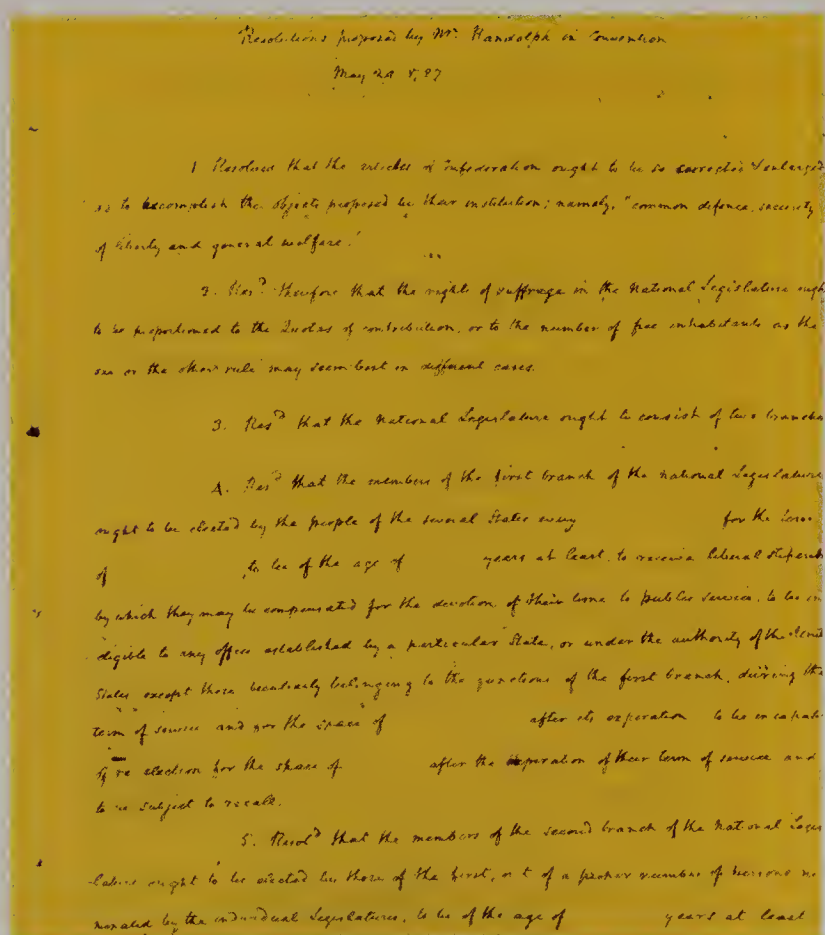 Resolutions proposed by Mr. Randolph in Convention
May 29 1787
1 Resolved that the articles of Confederation ought to be so corrected & enlarged
as to accomplish the objects proposed by their institution; namely, "common defence, security
of liberty and general welfare."
2. Resd. therefore that the rights of suffrage in the National Legislature ought
to be proportioned to the Quotas of contribution, or to the number of free inhabitants as the
one or the other rule may seem best in different cases.
3. Resd that the National Legislature ought to consist of two branches
4. Resd that the members of the first branch of the national Legislature
ought to be elected by the people of the several States every for the term
of to be of the age of years at least, to receive liberal stipends
by which they may be compensated for the devotion of their time to public service, to be in
eligible to any office established by a particular State, or under the authority of the United
States except those peculiarly belonging to the functions of the first branch, during the
term of service and for the space of after its expiration to be incapable
of re election for the space of after the expiration of their term of service and
to be subject to recall.
5. Resold that the members of the second branch of the National Legis
lature ought to be elected by those of the first, out of a proper number of persons no
minated by the individual Legislatures, to be of the age of years at least